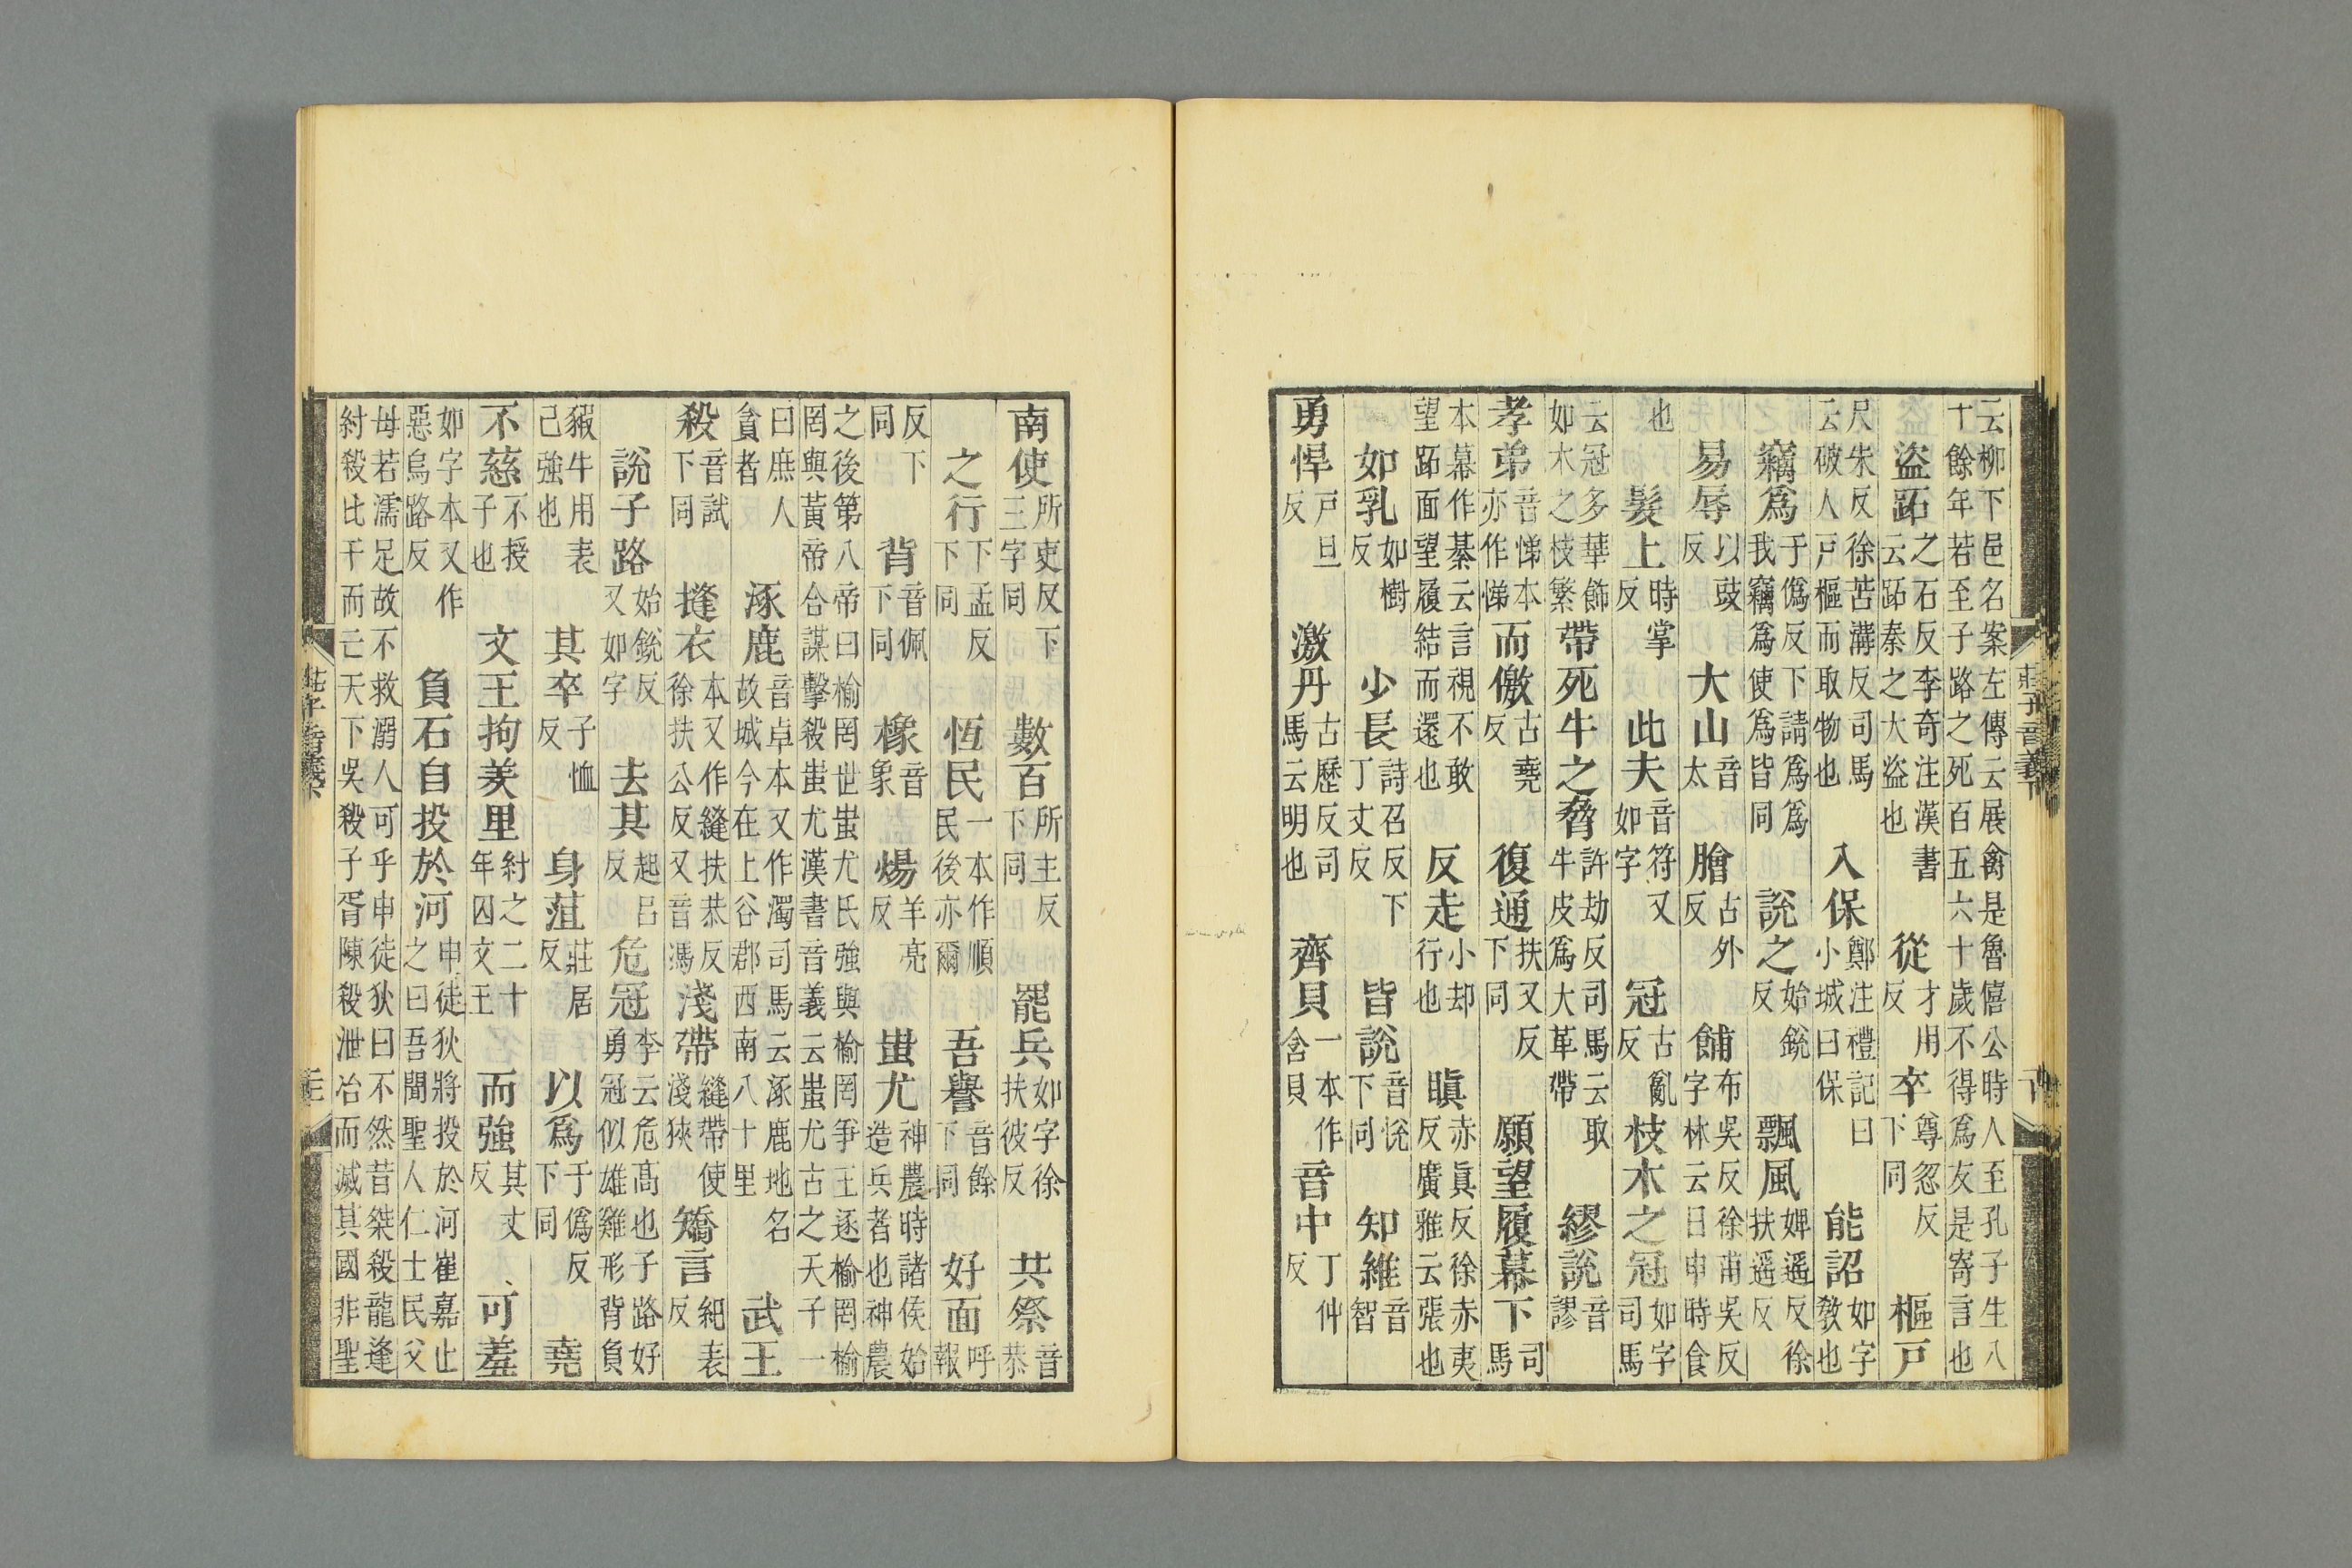 莊子音義下
云柳下邑名案左傳云展禽是魯僖公時人至孔子生八十餘年若至子路之死百五六十歲不得爲友是寄言也
盜跖之石反李奇注漢書云跖秦之大盜也 從才用反 卒尊忽反下同 樞戶
尺朱反徐苦溝反司馬云破人戶樞而取物也 入保鄭注禮記曰小城曰保 能詔如字敎也
竊爲于僞反下請爲爲我竊爲使爲皆同 說之始銳反 飄風婢遥反徐扶遥反
易辱以豉反 大山音太 膾古外反 餔布吳反徐甫吳反字林云日申時食
也 髮上時掌反 此夫音符又如字 冠古亂反 枝木之冠如字司馬
云冠多華飾如木之枝繁 帶死牛之脅許劫反司馬云取牛皮爲大革帶 繆說音謬
孝弟音悌本亦作悌 而儌古堯反 復通扶又反下同 願望履幕下司馬
本幕作綦云言視不敢望跖面望履結而還也 反走小却行也 瞋赤眞反徐赤夷反廣雅云張也
如乳如樹反 少長詩召反下丁丈反 皆說音悅下同 知維音智
勇悍戶旦反 激丹古歷反司馬云明也 齊貝一本作含貝 音中丁仲反
南使所吏反下三字同 數百所主反下同 罷兵如字徐扶彼反 共祭音恭
之行下孟反下同 恆民一本作順民後亦爾 吾譽音餘下同 好面呼報
反下同 背音佩下同 橡音象 煬羊亮反 蚩尤神農時諸侯始造兵者也神農
之後第八帝曰榆罔世蚩尤氏強與榆罔爭王逐榆罔榆罔與黃帝合謀擊殺蚩尤漢書音義云蚩尤古之天子一
曰庶人貪者 涿鹿音卓本又作濁司馬云涿鹿地名故城今在上谷郡西南八十里 武王
殺音試下同 摓衣本又作縫扶恭反徐扶公反又音馮 淺帶縫帶使淺狹 矯言紀表反
說子路始銳反又如字 去其起呂反 危冠李云危高也子路好勇冠似雄雞形背負
豭牛用表己強也 其卒子恤反 身菹莊居反 以爲于僞反下同 堯
不慈不授子也 文王拘羑里紂之二十年囚文王 而強其丈反 可羞
如字本又作惡烏路反 負石自投於河申徒狄將投於河崔嘉止之曰吾聞聖人仁士民父
母若濡足故不救溺人可乎申徒狄曰不然昔桀殺龍逢紂殺比干而亡天下吳殺子胥陳殺泄冶而滅其國非聖
莊子音義下